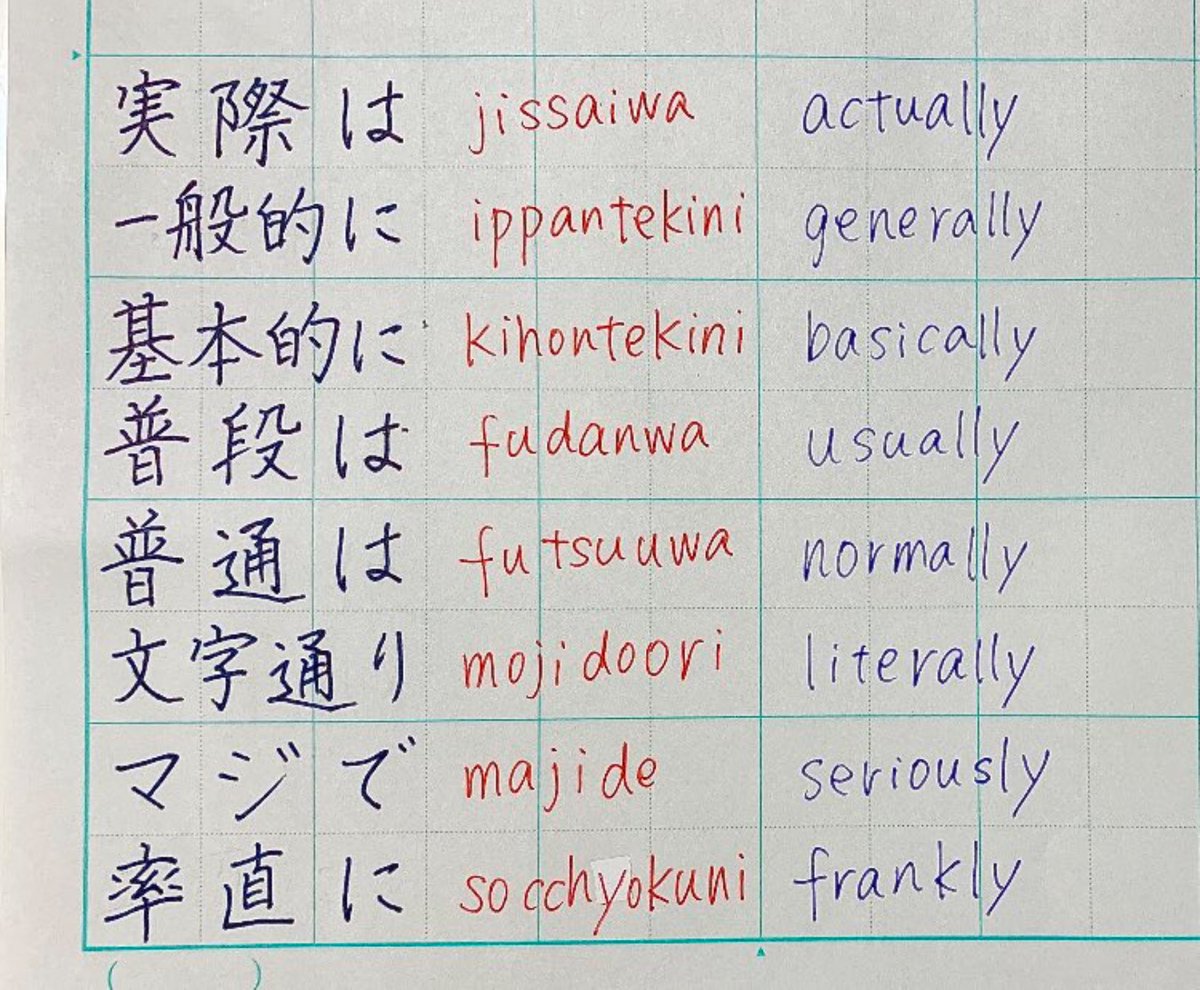 実際は jissaiwa actually
一般的に ippantekini generally
基本的に kihontekini basically
普段は fudanwa usually
普通は futsuuwa normally
文字通り mojidoori literally
マジで majide seriously
率直に socchyokuni frankly
( )